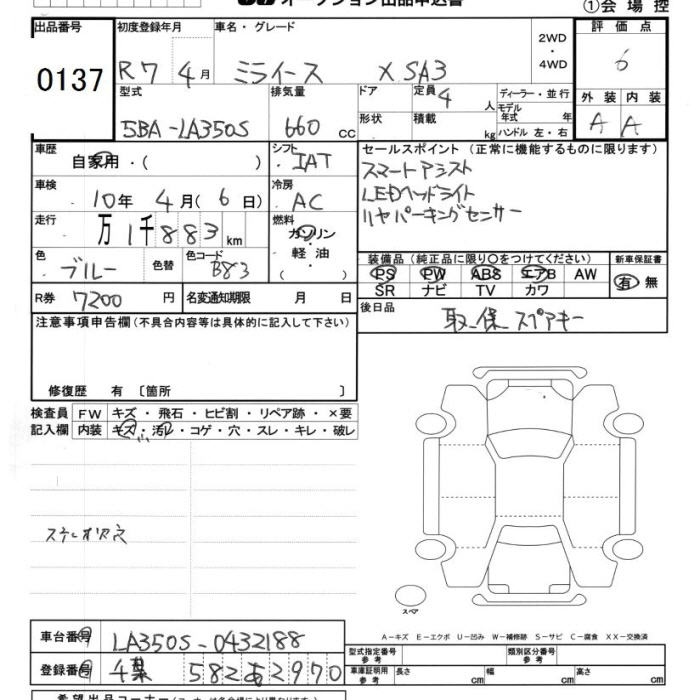 オークション出品申込書
①会場控
出品番号
0137
初度登録年月
R7年4月
車名・グレード
ミライース X SA3
2WD
・
4WD
評価点
6
外装 内装
A A
型式
5BA-LA350S
排気量
660 cc
ドア
形状
定員 4 人
積載 kg
ディーラー・並行
モデル年式 年
ハンドル 左・右
車歴
自家用・( )
シフト
IAT
セールスポイント (正常に機能するものに限ります)
スマートアシスト
LEDヘッドライト
リヤパーキングセンサー
車検
10年 4月(6日)
冷房
AC
走行
万 1千 883 km
燃料
ガソリン
軽油
( )
色
ブルー
色替
色コード
B83
装備品 (純正品に限り○をつけてください)
PS PW ABS エアB AW
SR ナビ TV カワ
新車保証書
有 無
R券 7200 円
名変通知期限 月 日
後日品
取. 保. スペアキー
注意事項申告欄 (不具合内容等は具体的に記入して下さい)
修復歴 有 〔箇所 〕
検査員
記入欄
FW キズ・飛石・ヒビ割・リペア跡・×要
内装 キズ・汚レ・コゲ・穴・スレ・キレ・破レ
ステレオ穴
スペア
A－キズ E－エクボ U－凹み W－補修跡 S－サビ C－腐食 XX－交換済
車台番号
LA350S-0432188
登録番号
千葉 582 あ 2970
型式指定番号
参考
類別区分番号
参考
車庫証明用
参考
長さ cm 幅 cm 高さ cm
希望出品コーナー